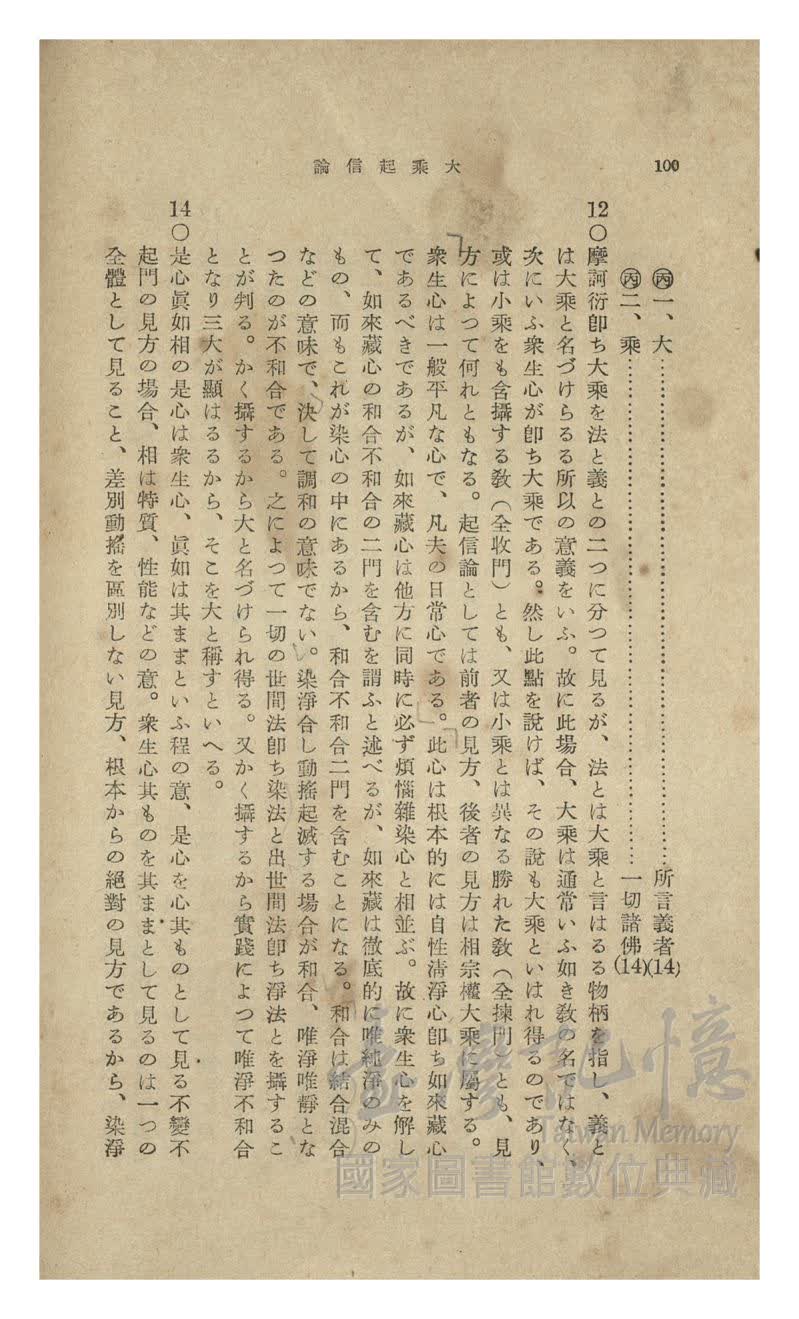 100
大乘起信論
㊅一、大……………………………………………所言義者(14)
㊅二、乘……………………………………………一切諸佛(14)
12〇摩訶衍卽ち大乘を法と義との二つに分つて見るが、法とは大乘と言はるる物柄を指し、義と
は大乘と名づけらるる所以の意義をいふ。故に此場合、大乘は通常いふ如き敎の名ではなく、
次にいふ衆生心が卽ち大乘である。然し此點を說けば、その說も大乘といはれ得るのであり、
或は小乘をも含攝する敎(全收門)とも、又は小乘とは異なる勝れた敎(全揀門)とも、見
方によつて何れともなる。起信論としては前者の見方、後者の見方は相宗權大乘に屬する。
衆生心は一般平凡な心で、凡夫の日常心である。此心は根本的には自性淸淨心卽ち如來藏心
であるべきであるが、如來藏心は他方に同時に必ず煩惱雜染心と相並ぶ。故に衆生心を解し
て、如來藏心の和合不和合の二門を含むを謂ふと述べるが、如來藏は徹底的に唯純淨のみの
もの、而もこれが染心の中にあるから、和合不和合二門を含むことになる。和合は結合混合
などの意味で、決して調和の意味でない。染淨合し動搖起滅する場合が和合、唯淨唯靜とな
つたのが不和合である。之によつて一切の世間法卽ち染法と出世間法卽ち淨法とを攝するこ
とが判る。かく攝するから大と名づけられ得る。又かく攝するから實踐によつて唯淨不和合
となり三大が顯はるるから、そこを大と稱すといへる。
14〇是心眞如相の是心は衆生心、眞如は其ままといふ程の意、是心を心其ものとして見る不變不
起門の見方の場合、相は特質、性能などの意。衆生心其ものを其ままとして見るのは一つの
全體として見ること、差別動搖を區別しない見方、根本からの絕對の見方であるから、染淨
臺灣記憶
Taiwan Memory
國家圖書館數位典藏